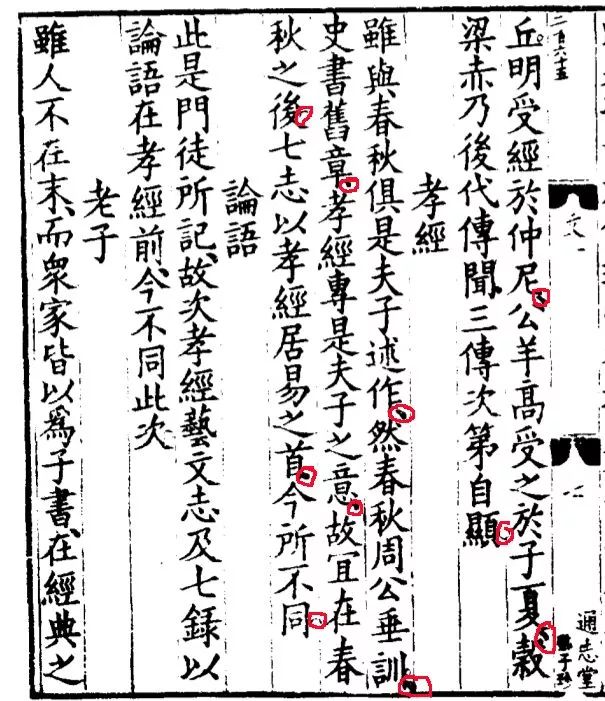 二百六十五
通志堂
丘明受經於仲尼、公羊高受之於子夏、穀
梁赤乃後代傳聞、三傳次第自顯、
孝經
雖與春秋俱是夫子述作、然春秋周公垂訓、
史書舊章、孝經專是夫子之意、故宜在春
秋之後、七志以孝經居易之首、今所不同、
論語
此是門徒所記、故次孝經藝文志及七録以
論語在孝經前、今不同此次
老子
雖人不在末、而衆家皆以爲子書、在經典之